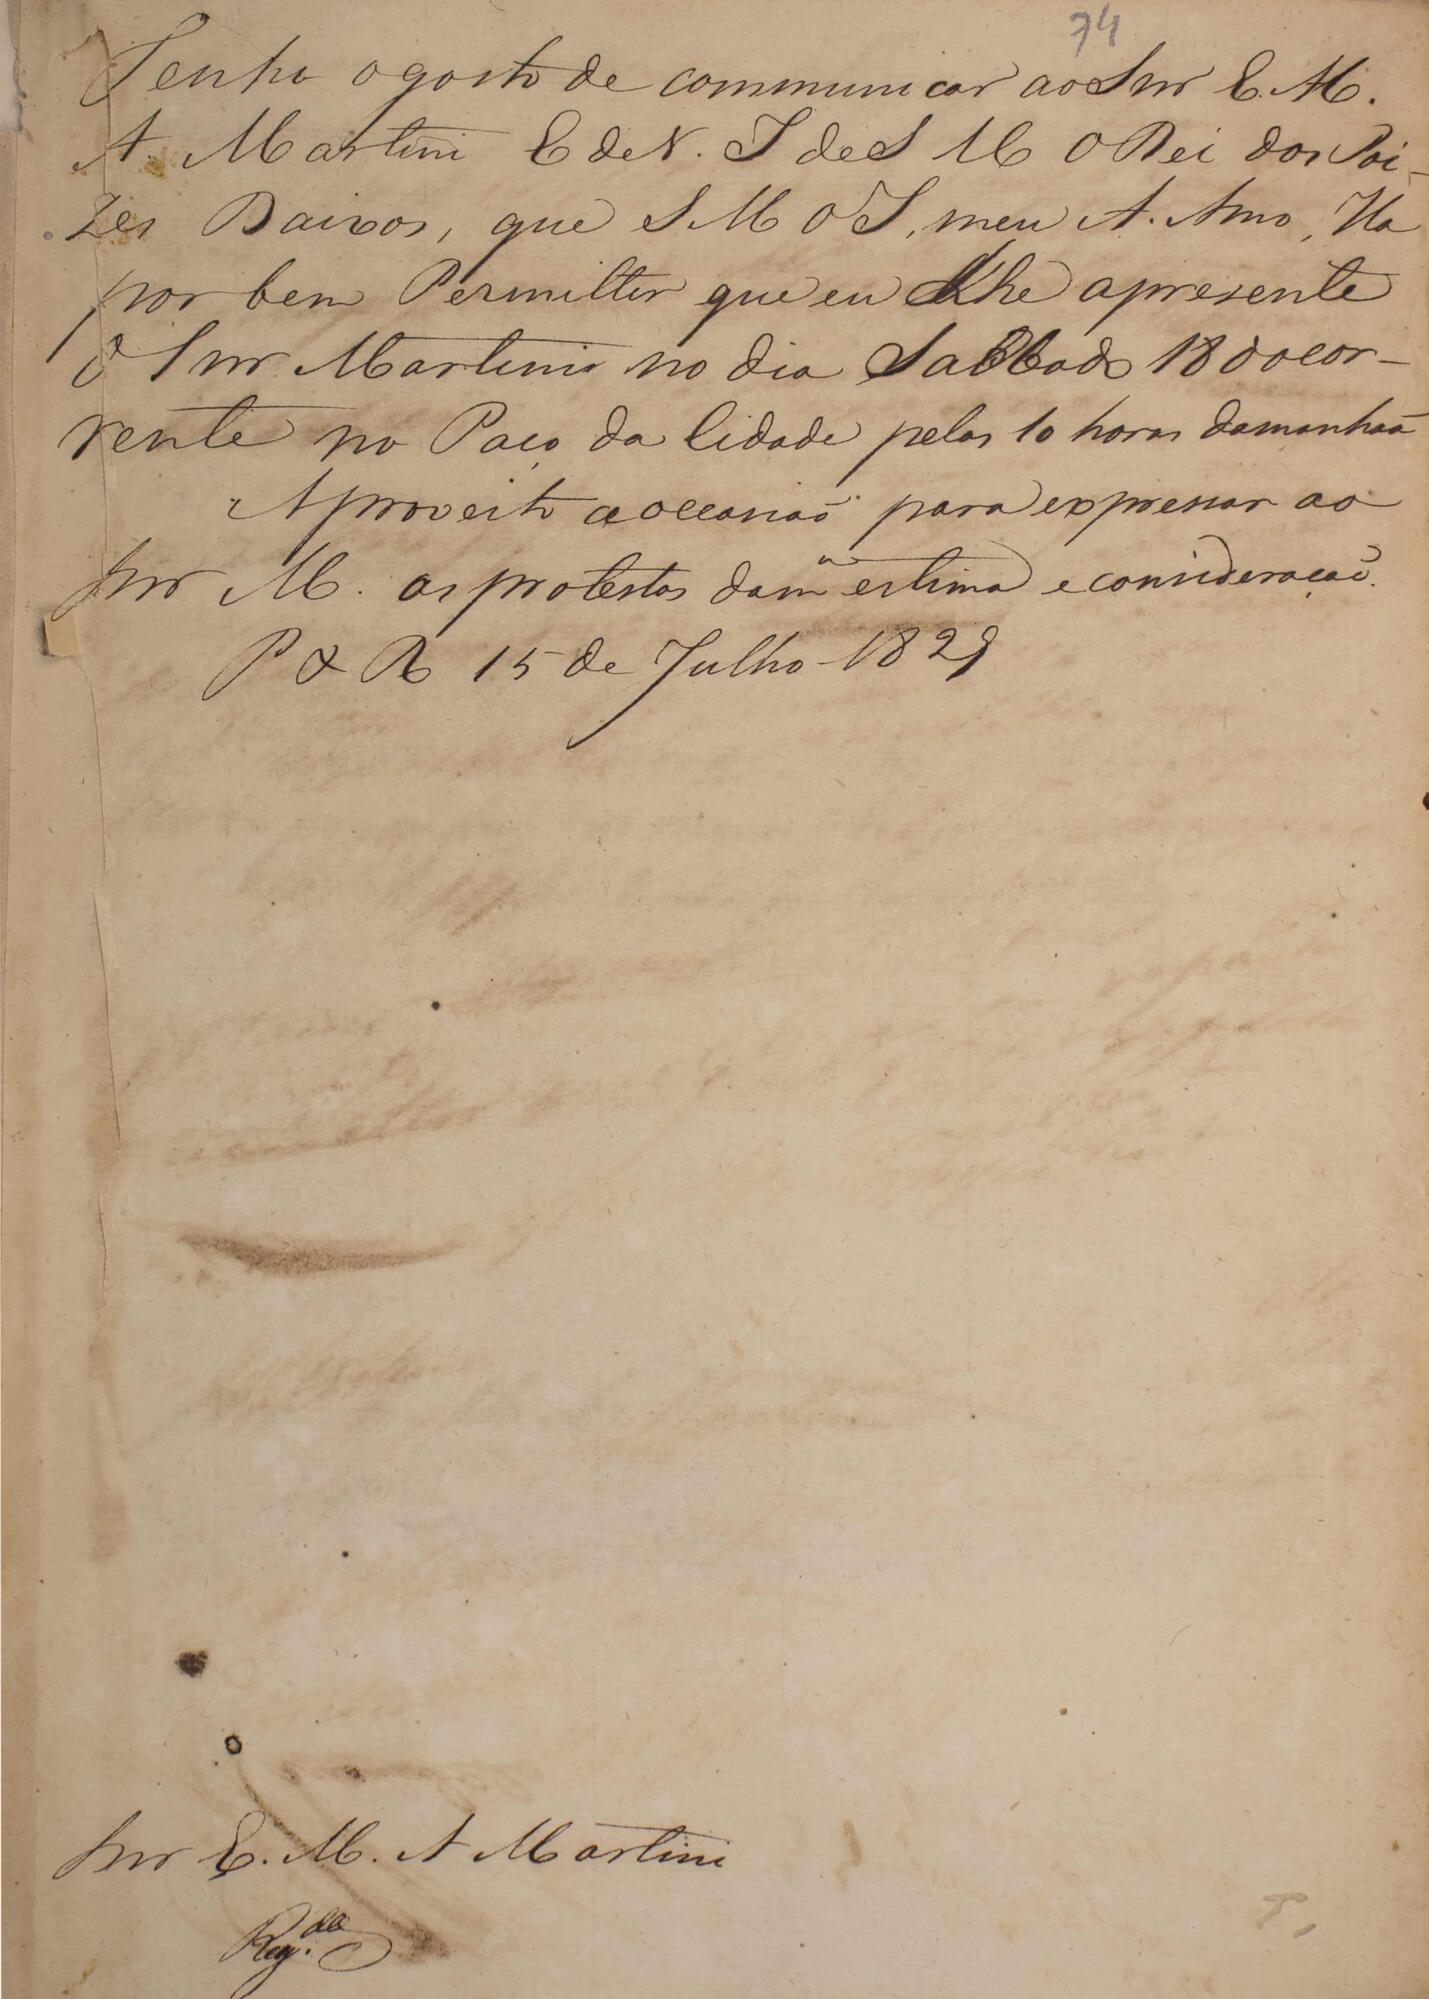 74
Tenho o gosto de communicar ao Snr E. M.
A. Martini E de N. I de S M O Rei dos Pai-
zes Baixos, que S M O I, meu A. Amo, Ha
por bem Permittir que eu Lhe apresente
o Snr Martini no dia Sabbado 18 do cor-
rente no Paço da Cidade pelas 10 horas da manhãa
Aproveito a occasiaõ para expressar ao
Snr M. os protestos da mª estima e consideraçaõ.
P & R 15 de Julho 1829
Snr E. M. A Martini
Reg.da